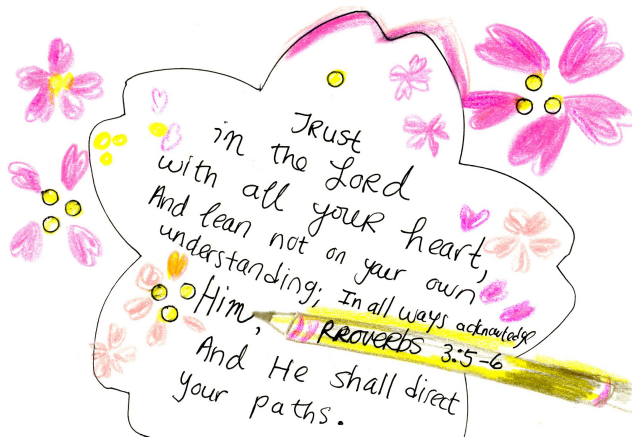 Trust
in the Lord
with all your heart,
And lean not on your own
understanding; In all ways acknowledge
Him,
PROVERBS 3:5-6
And He shall direct
your paths.